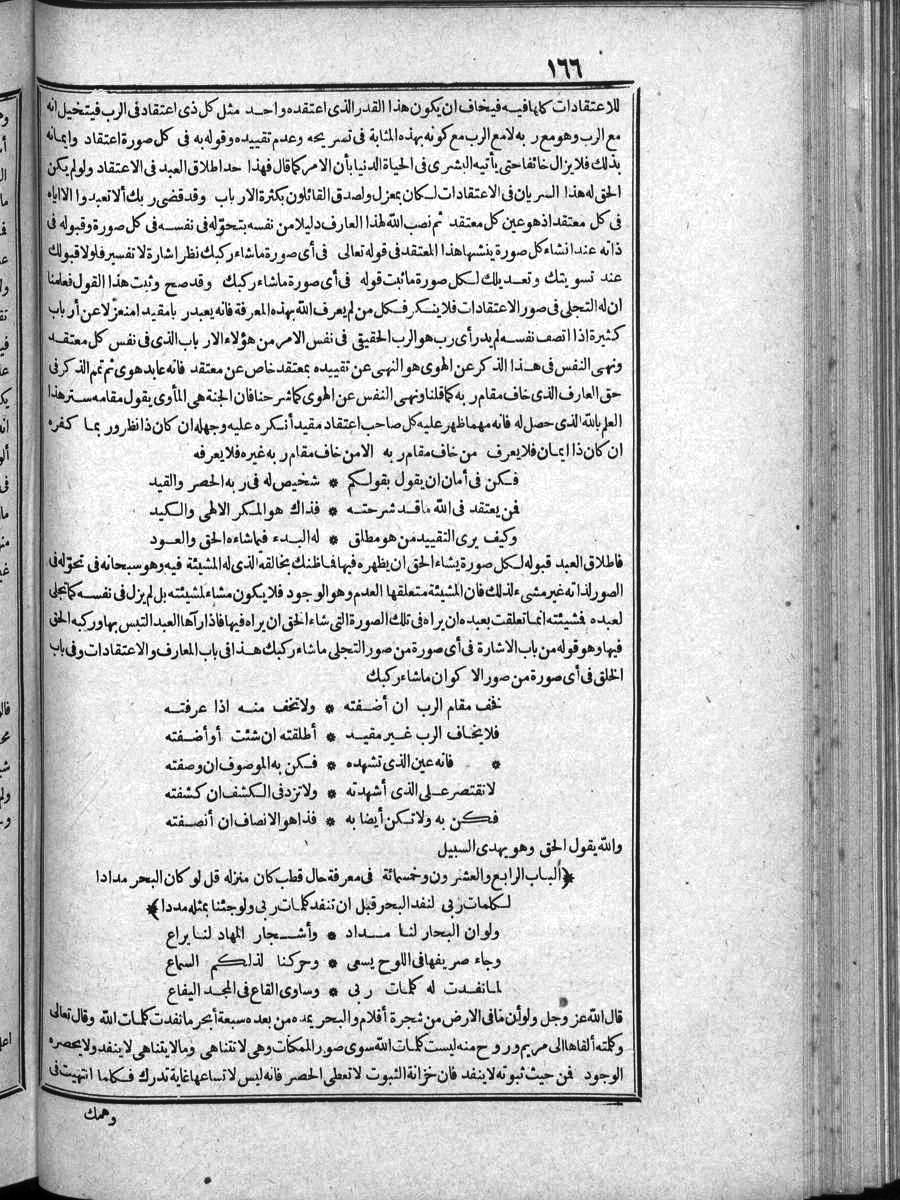 ١٦٦
للاعتقادات كلها فيه فيخاف ان يكون هذا القدر الذى اعتقده واحد مثل كل ذى اعتقاد فى الرب فيتخيل انه
مع الرب وهو مع ربه لا مع الرب مع كونه بهذه المثابة فى تسريحه وعدم تقييده وقوله به فى كل صورة اعتقاد وايمانه
بذلك فلا يزال خائفا حتى يأتيه البشرى فى الحياة الدنيا بأن الامر كما قال فهذا حد اطلاق العبد فى الاعتقاد ولو لم يكن
الحق له هذا السريان فى الاعتقادات لكان بمعزل ولصدق القائلون بكثرة الارباب وقد قضى ربك ألا تعبدوا الا اياه
فى كل معتقد اذ هو عين كل معتقد ثم نصب الله لهذا العارف دليلا من نفسه بتحوّله فى نفسه فى كل صورة وقبوله فى
ذاته عند انشاء كل صورة ينشها هذا المعتقد فى قوله تعالى فى أى صورة ما شاء ركبك نظر اشارة لا تفسير فلولا قبولك
عند تسويتك وتعديلك لكل صورة ما ثبت قوله فى أى صورة ما شاء ركبك وقد صح وثبت هذا القول فعلمنا
ان له التجلى فى صور الاعتقادات فلا ينكر فكل من لم يعرف الله بهذه المعرفة فانه يعبد ربا مقيدا منعزلا عن أرباب
كثيرة اذا اتصف نفسه لم يدر أى رب هو الرب الحقيقى فى نفس الامر من هؤلاء الارباب الذى فى نفس كل معتقد
ونهى النفس فى هذا الذكر عن الهوى هو النهى عن تقييده بمعتقد خاص عن معتقد فانه عابد هوى ثم تمم الذكر فى
حق العارف الذى خاف مقام ربه كما قلنا ونهى النفس عن الهوى كما شرحنا فان الجنة هى المأوى يقول مقامه ستر هذا
العلم بالله الذى حصل له فانه مهما ظهر عليه كل صاحب اعتقاد مقيد أنكره عليه وجهله ان كان ذا نظر وربما كفره
ان كان ذا ايمان فلا يعرف من خاف مقام ربه الا من خاف مقام ربه غيره فلا يعرفه
فكن فى أمان ان يقول بقولكم * شخيص له فى ربه الحصر والقيد
فمن يعتقد فى الله ما قد شرحته * فذاك هو المكر الالهى والكيد
وكيف يرى التقييد من هو مطلق * له البدء فيما شاءه الحق والعود
فاطلاق العبد قبوله لكل صورة يشاء الحق ان يظهره فيها فما ظنك بخالقه الذى له المشيئة فيه وهو سبحانه فى تحوّله فى
الصور لذاته غير مشىء لذلك فان المشيئة متعلقها العدم وهو الوجود فلا يكون مشاء لمشيئته بل لم يزل فى نفسه كما تجلى
لعبده فمشيئته انما تعلقت بعبده ان يراه فى تلك الصورة التى شاء الحق ان يراه فيها فاذا رآها العبد التبس بها وركبه الحق
فيها وهو قوله من باب الاشارة فى أى صورة من صور التجلى ما شاء ركبك هذا فى باب المعارف والاعتقادات وفى باب
الخلق فى أى صورة من صور الاكوان ما شاء ركبك
نخف مقام الرب ان أضفته * ولا تخف منه اذا عرفته
فلا يخاف الرب غير مقيد * أطلقته ان شئت أو أضفته
* فانه عين الذى تشهده * فكن به الموصوف ان وصفته
لا تقتصر على الذى أشهدته * ولا تزد فى الكشف ان كشفته
فكن به ولا تكن أيضا به * فذا هو الانصاف ان أنصفته
والله يقول الحق وهو يهدى السبيل
﴿الباب الرابع والعشرون وخمسمائة فى معرفة حال قطب كان منزله قل لو كان البحر مدادا
لكلمات ربى لنفد البحر قبل ان تنفد كلمات ربى ولو جئنا بمثله مددا﴾
ولو ان البحار لنا مداد * وأشجار المهاد لنا يراع
وجاء صريفها فى اللوح يسعى * وحركنا لذلكم السماع
لما نفدت له كلمات ربى * وساوى القاع فى المجد اليفاع
قال الله عز وجل ولو أن ما فى الارض من شجرة أقلام والبحر يمده من بعده سبعة أبحر ما نفدت كلمات الله وقال تعالى
وكلمته ألقاها الى مريم وروح منه ليست كلمات الله سوى صور الممكنات وهى لا تتناهى وما لا يتناهى لا ينفد ولا يحصره
الوجود فمن حيث ثبوته لا ينفد فان خزانة الثبوت لا تعطى الحصر فانه ليس لاتساعها غاية تدرك فكلما انتهيت فى
وهمك